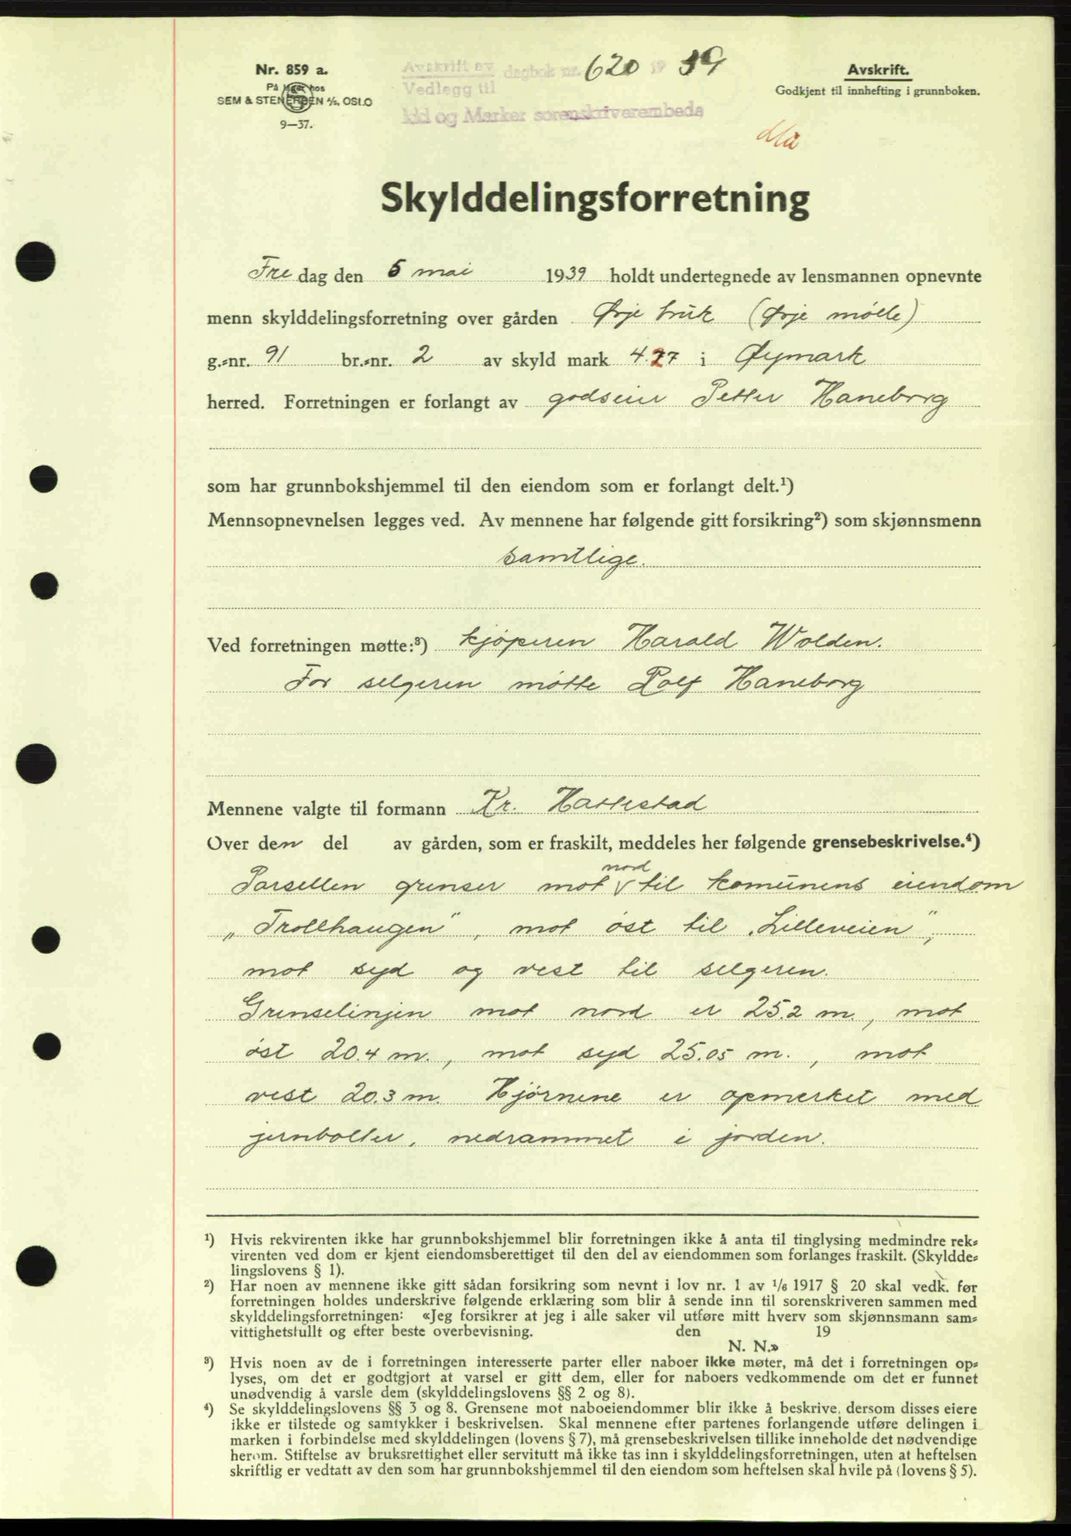 Nr. 859 a.
På lager hos
SEM & STENERSEN A/S, OSLO
9—37.
Avskrift av dagbok nr. 620 19 39
Vedlegg til
Idd og Marker sorenskriverembede
Avskrift.
Godkjent til innhefting i grunnboken.
Skylddelingsforretning
Fredag den 5 mai 1939 holdt undertegnede av lensmannen opnevnte
menn skylddelingsforretning over gården Ørje bruk (Ørje mølle)
g.-nr. 91 br.-nr. 2 av skyld mark 4.27 i Øymark
herred. Forretningen er forlangt av godseier Petter Haneborg
som har grunnbokshjemmel til den eiendom som er forlangt delt.¹)
Mennsopnevnelsen legges ved. Av mennene har følgende gitt forsikring²) som skjønnsmenn
samtlige.
Ved forretningen møtte:³) kjøperen Harald Wolden.
For selgeren møtte Rolf Haneborg
Mennene valgte til formann Kr. Hattestad
Over den del av gården, som er fraskilt, meddeles her følgende grensebeskrivelse.⁴)
Parsellen grenser mot nord til komunens eiendom
"Trollhaugen", mot øst til "Lilleveien",
mot syd og vest til selgeren.
Grenselinjen mot nord er 25.2 m., mot
øst 20.4 m., mot syd 25.05 m., mot
vest 20.3 m. Hjørnene er opmerket med
jernbolter, nedrammet i jorden.
¹) Hvis rekvirenten ikke har grunnbokshjemmel blir forretningen ikke å anta til tinglysing medmindre rek-
virenten ved dom er kjent eiendomsberettiget til den del av eiendommen som forlanges fraskilt. (Skyldde-
lingslovens § 1).
²) Har noen av mennene ikke gitt sådan forsikring som nevnt i lov nr. 1 av 1/6 1917 § 20 skal vedk. før
forretningen holdes underskrive følgende erklæring som blir å sende inn til sorenskriveren sammen med
skylddelingsforretningen: «Jeg forsikrer at jeg i alle saker vil utføre mitt hverv som skjønnsmann sam-
vittighetsfullt og efter beste overbevisning. den 19
N. N.»
³) Hvis noen av de i forretningen interesserte parter eller naboer ikke møter, må det i forretningen op-
lyses, om det er godtgjort at varsel er gitt dem, eller for naboers vedkommende om det er funnet
unødvendig å varsle dem (skylddelingslovens §§ 2 og 8).
⁴) Se skylddelingslovens §§ 3 og 8. Grensene mot naboeiendommer blir ikke å beskrive, dersom disses eiere
ikke er tilstede og samtykker i beskrivelsen. Skal mennene efter partenes forlangende utføre delingen i
marken i forbindelse med skylddelingen (lovens § 7), må grensebeskrivelsen tillike inneholde det nødvendige
herom. Stiftelse av bruksrettighet eller servitutt må ikke tas inn i skylddelingsforretningen, uten at heftelsen
skriftlig er vedtatt av den som har grunnbokshjemmel til den eiendom som heftelsen skal hvile på (lovens § 5).